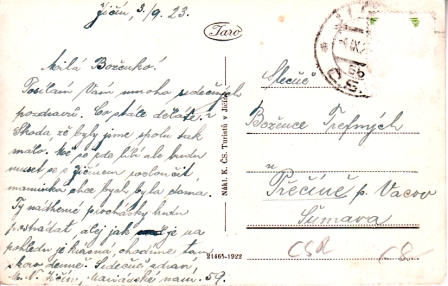 Jičín, 3./9. 23.
Milá Boženko!
Posílám Vám mnoho srdečných
pozdravů. Co stále děláte?
Škoda, že byly jsme spolu tak
málo. Mě se zde líbí ale budu
muset se s Jičínem rozloučit,
maminka chce bych byla doma.
Ty nádherné procházky budu
postrádat, alej jak je na
pohledu je krásná, chodíme tam
skoro denně. Srdečně zdraví
M. N. Jičín, Mariánské nám. 59.
Taro
Nákl. K. ČS. Turistů v Jičíně
21465-1922
Slečna
Božence Trefných
u
Přečíně p. Vacov
Šumava
ČSR
-8-